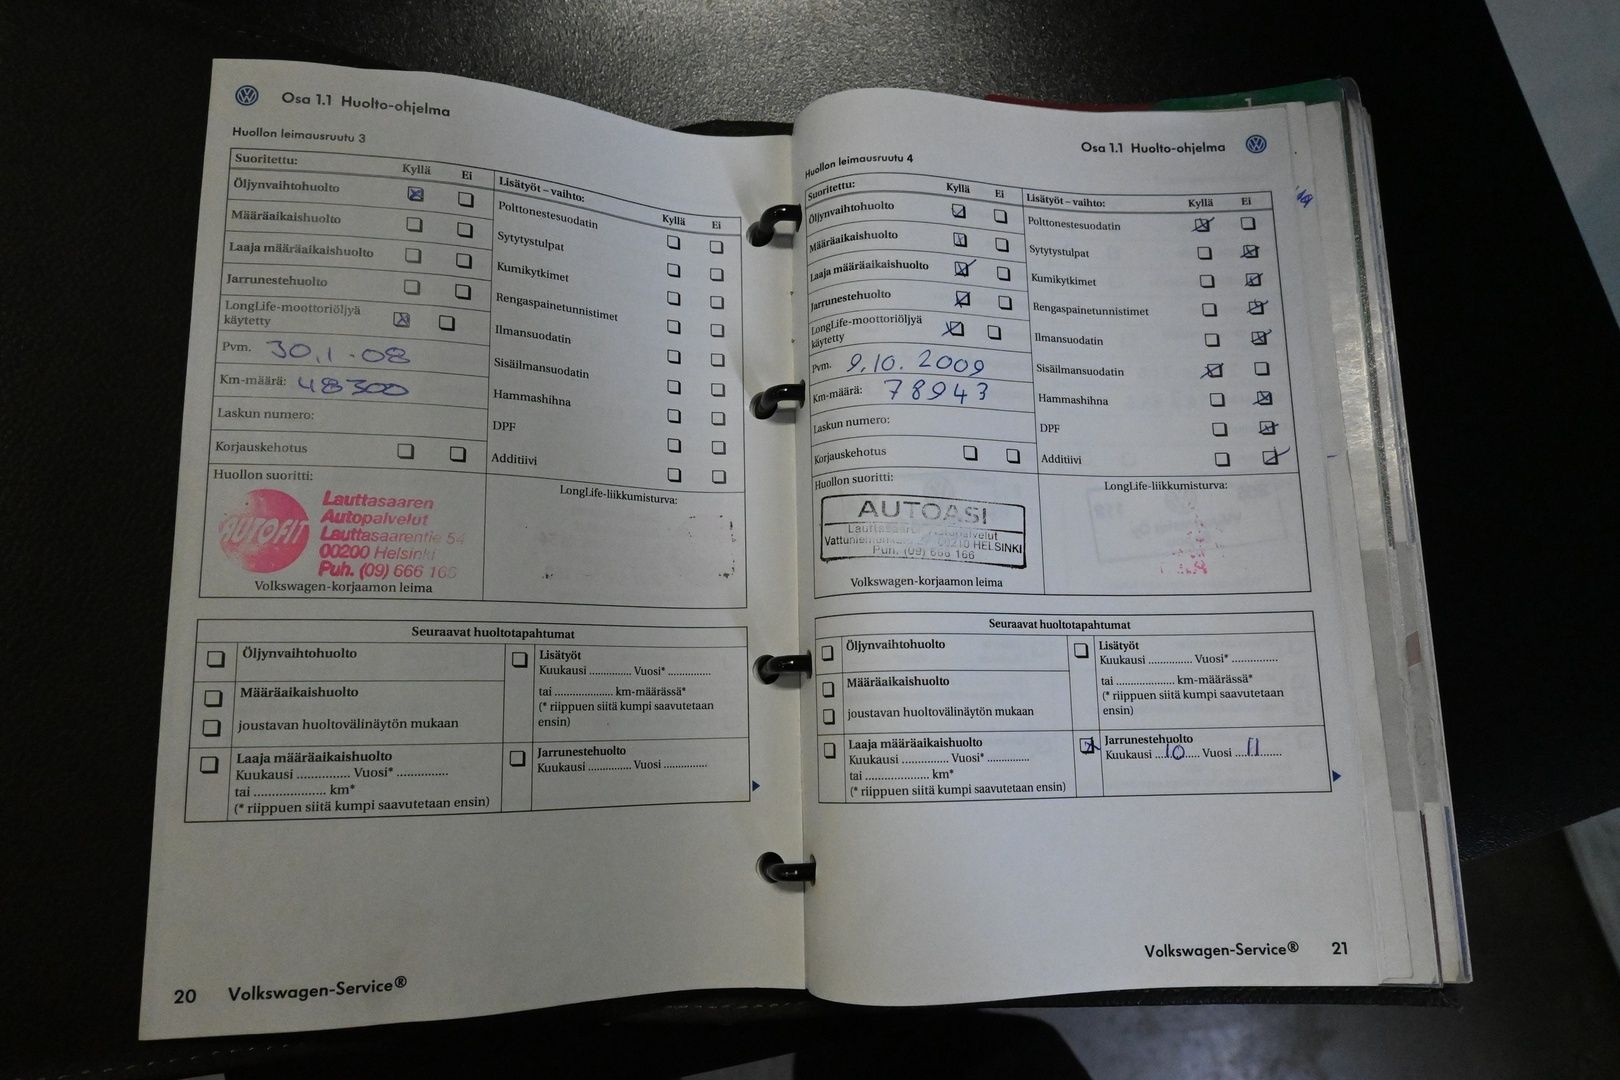 Osa 1.1 Huolto-ohjelma
Huollon leimausruutu 3
Suoritettu: Kyllä Ei
Öljynvaihtohuolto
Määräaikaishuolto
Laaja määräaikaishuolto
Jarrunestehuolto
LongLife-moottoriöljyä
käytetty
Pvm. 30.1.08
Km-määrä: 48300
Laskun numero:
Korjauskehotus
Huollon suoritti:
AUTOFIT
Lauttasaaren
Autopalvelut
Lauttasaarentie 54
00200 Helsinki
Puh. (09) 666 166
Volkswagen-korjaamon leima
Lisätyöt – vaihto: Kyllä Ei
Polttonestesuodatin
Sytytystulpat
Kumikytkimet
Rengaspainetunnistimet
Ilmansuodatin
Sisäilmansuodatin
Hammashihna
DPF
Additiivi
LongLife-liikkumisturva:
Seuraavat huoltotapahtumat
Öljynvaihtohuolto
Määräaikaishuolto
joustavan huoltovälinäytön mukaan
Laaja määräaikaishuolto
Kuukausi ............... Vuosi* ..............
tai .................... km*
(* riippuen siitä kumpi saavutetaan ensin)
Lisätyöt
Kuukausi ............. Vuosi* ...............
tai .................... km-määrässä*
(* riippuen siitä kumpi saavutetaan
ensin)
Jarrunestehuolto
Kuukausi ............... Vuosi ...............
20 Volkswagen-Service®
Osa 1.1 Huolto-ohjelma
Huollon leimausruutu 4
Suoritettu: Kyllä Ei
Öljynvaihtohuolto
Määräaikaishuolto
Laaja määräaikaishuolto
Jarrunestehuolto
LongLife-moottoriöljyä
käytetty
Pvm. 9.10.2009
Km-määrä: 78943
Laskun numero:
Korjauskehotus
Huollon suoritti:
AUTOASI
00210 HELSINKI
Puh. (09) 666 166
Volkswagen-korjaamon leima
Lisätyöt – vaihto: Kyllä Ei
Polttonestesuodatin
Sytytystulpat
Kumikytkimet
Rengaspainetunnistimet
Ilmansuodatin
Sisäilmansuodatin
Hammashihna
DPF
Additiivi
LongLife-liikkumisturva:
Seuraavat huoltotapahtumat
Öljynvaihtohuolto
Määräaikaishuolto
joustavan huoltovälinäytön mukaan
Laaja määräaikaishuolto
Kuukausi ............... Vuosi* ..............
tai .................... km*
(* riippuen siitä kumpi saavutetaan ensin)
Lisätyöt
Kuukausi ............... Vuosi* ...............
tai .................... km-määrässä*
(* riippuen siitä kumpi saavutetaan
ensin)
Jarrunestehuolto
Kuukausi ....10.... Vuosi ....11....
Volkswagen-Service® 21